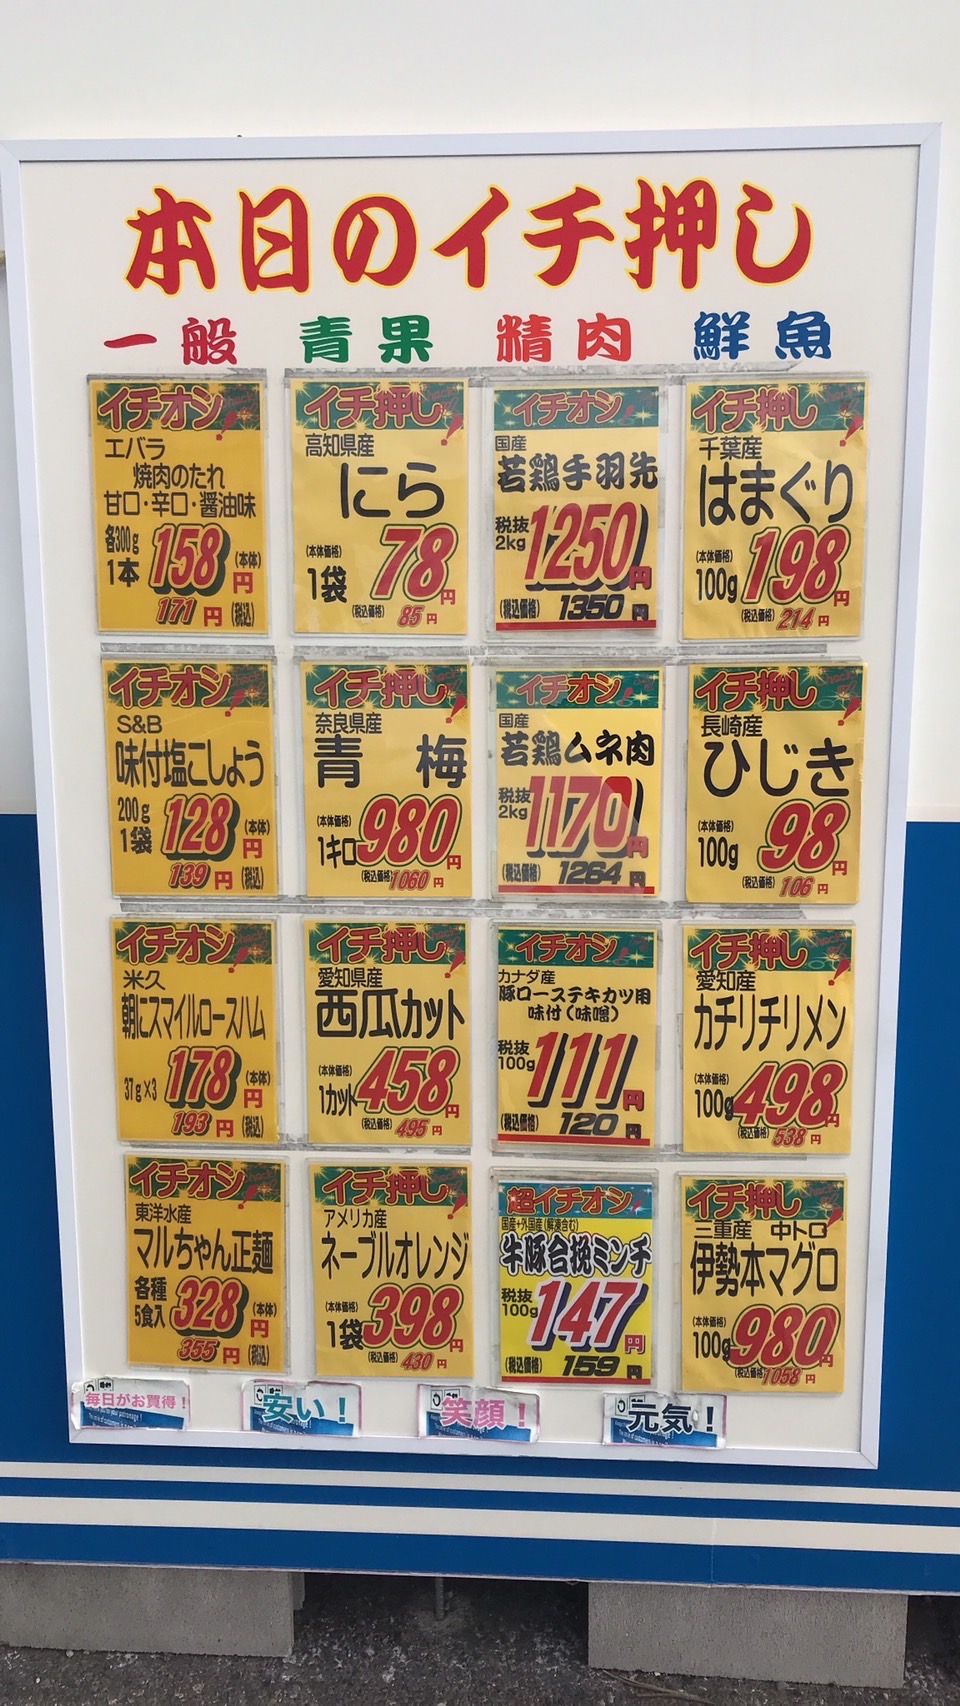 本日のイチ押し
一般 青果 精肉 鮮魚
イチオシ!
エバラ
焼肉のたれ
甘口・辛口・醤油味
各300g
1本
158円(本体)
171円(税込)
イチ押し!
高知県産
にら
(本体価格)
1袋
78円
(税込価格) 85円
イチオシ!
国産
若鶏手羽先
税抜
2kg
1250円
(税込価格) 1350円
イチ押し!
千葉産
はまぐり
(本体価格)
100g
198円
(税込価格) 214円
イチオシ!
S&B
味付塩こしょう
200g
1袋
128円(本体)
139円(税込)
イチ押し!
奈良県産
青梅
(本体価格)
1キロ
980円
(税込価格) 1060円
イチオシ!
国産
若鶏ムネ肉
税抜
2kg
1170円
(税込価格) 1264円
イチ押し!
長崎産
ひじき
(本体価格)
100g
98円
(税込価格) 106円
イチオシ!
米久
朝にスマイルロースハム
37g×3
178円(本体)
193円(税込)
イチ押し!
愛知県産
西瓜カット
(本体価格)
1カット
458円
(税込価格) 495円
イチオシ!
カナダ産
豚ローステキカツ用
味付(味噌)
税抜
100g
111円
(税込価格) 120円
イチ押し!
愛知産
カチリチリメン
(本体価格)
100g
498円
(税込価格) 538円
イチオシ!
東洋水産
マルちゃん正麺
各種
5食入
328円(本体)
355円(税込)
イチ押し!
アメリカ産
ネーブルオレンジ
(本体価格)
1袋
398円
(税込価格) 430円
超イチオシ!
国産+外国産(解凍含む)
牛豚合挽ミンチ
税抜
100g
147円
(税込価格) 159円
イチ押し!
三重産 中トロ
伊勢本マグロ
(本体価格)
100g
980円
(税込価格) 1058円
毎日がお買得!
安い!
笑顔!
元気!